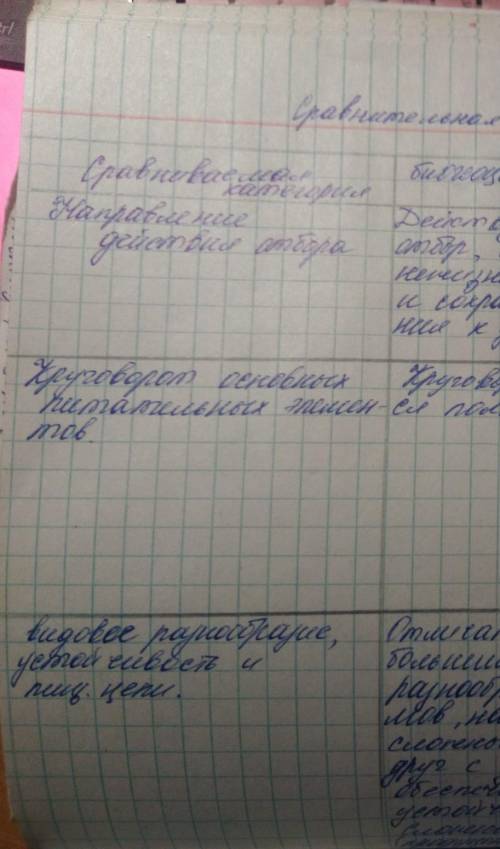 Сравнительная
Сравниваемая
категория
биогеоц
Направление
действия отбора
Действ
отбор,
нежизн
и сохра
ния к
Круговорот основных
питательных элемен-
тов.
Кругово
ся пол
видовое разнообразие,
устойчивость и
пищ. цепи.
Отличат
больши
разнооб
мов,
сложны
друг с
обеспеч
устойч